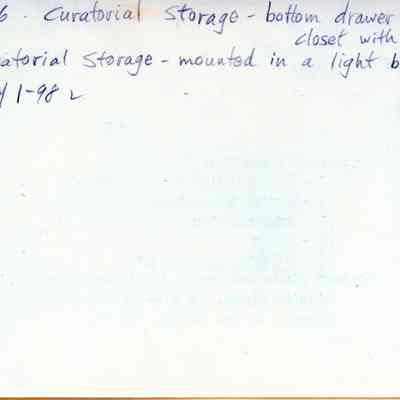 6. Curatorial Storage - bottom drawer
closet with
atorial Storage - mounted in a light b
1-98